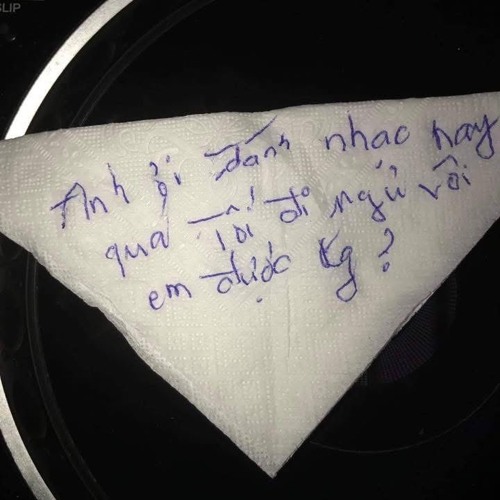 SLIP
Anh ơi đánh nhac hay
quá Tối đi ngủ với
em được kg?